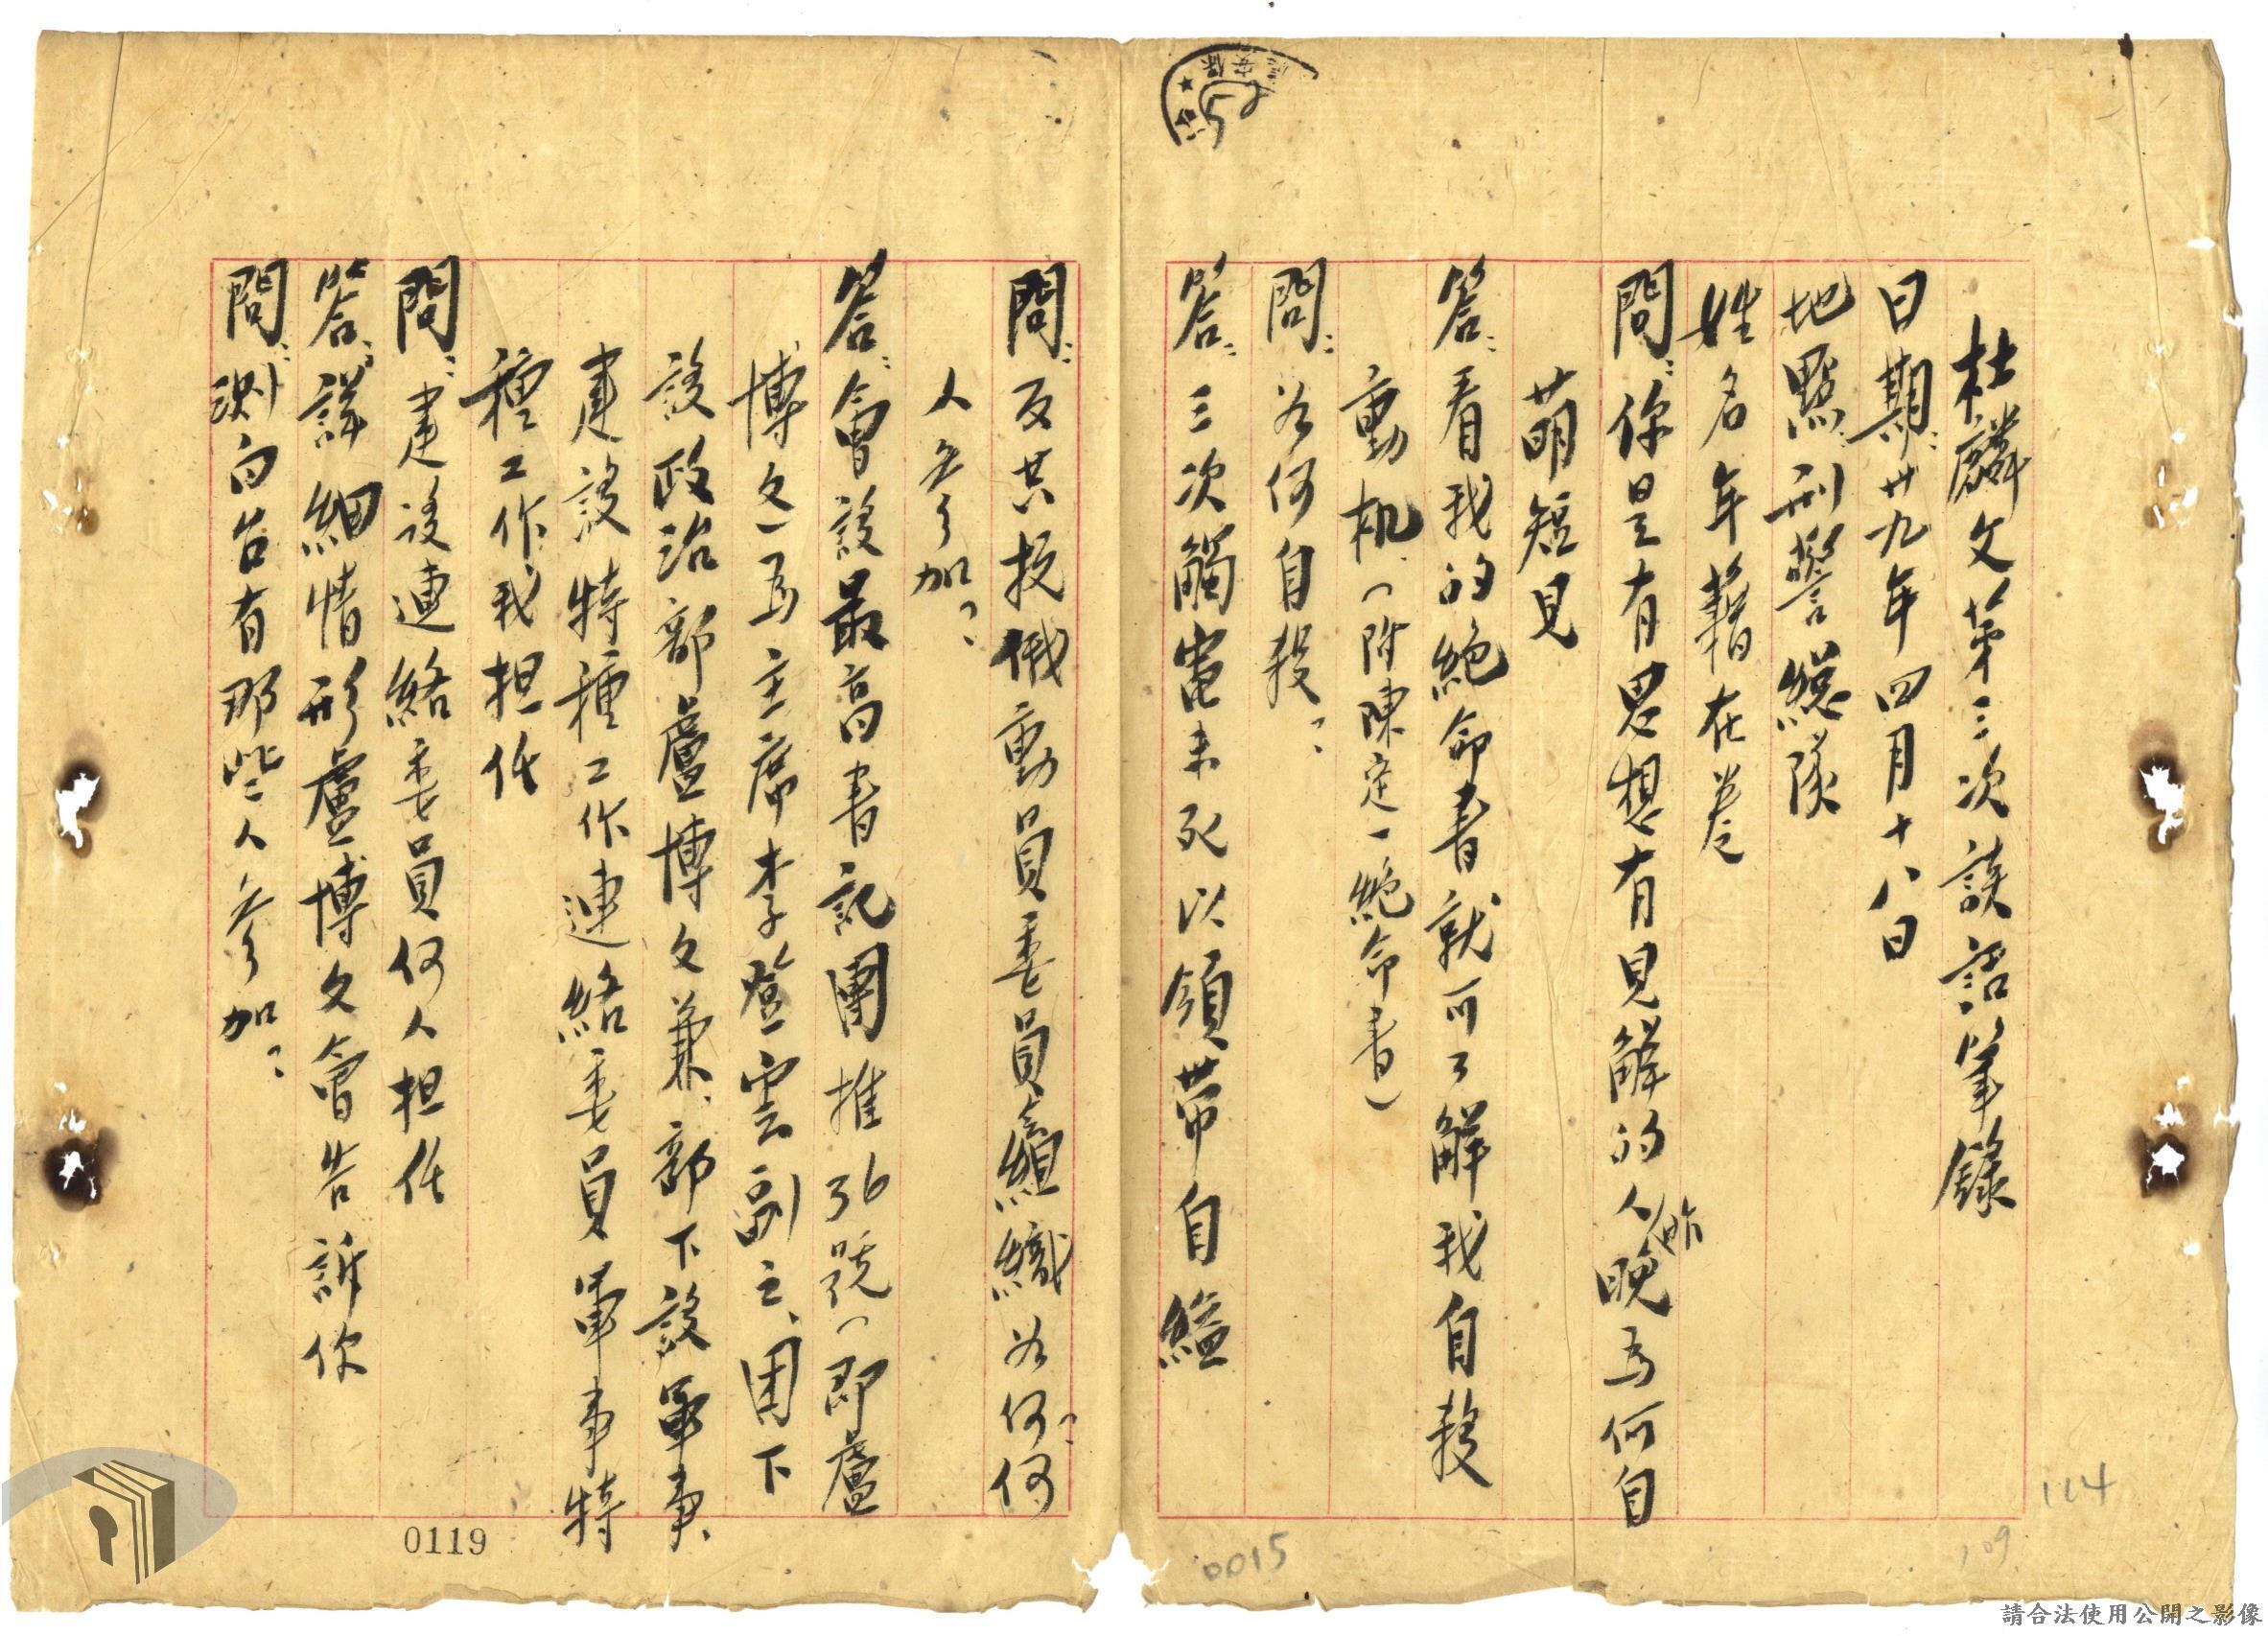 杜麟文第三次談話筆錄
日期:廿九年四月十八日
地點:刑警總隊
姓名年籍在卷
問:你是有思想有見解的人昨晚為何自
萌短見
答:看我的絕命書就可了解我自殺
動机、(附陳定一絕命書)
問:為何自殺?
答:三次觸電未死以領帶自縊
問:反共抗俄動員委員組織為何?何
人參加?
答:會設最高書記團推36號(即盧
博文)為主席李登雲副之、團下
設政治部盧博文兼、部下設軍事、
建設特種工作連絡委員軍事特
種工作、我担任
問:建設連絡委員何人担任
答:詳細情形盧博文會告訴你
問:測向台有那些人參加?
114
109
0015
0119
請合法使用公開之影像